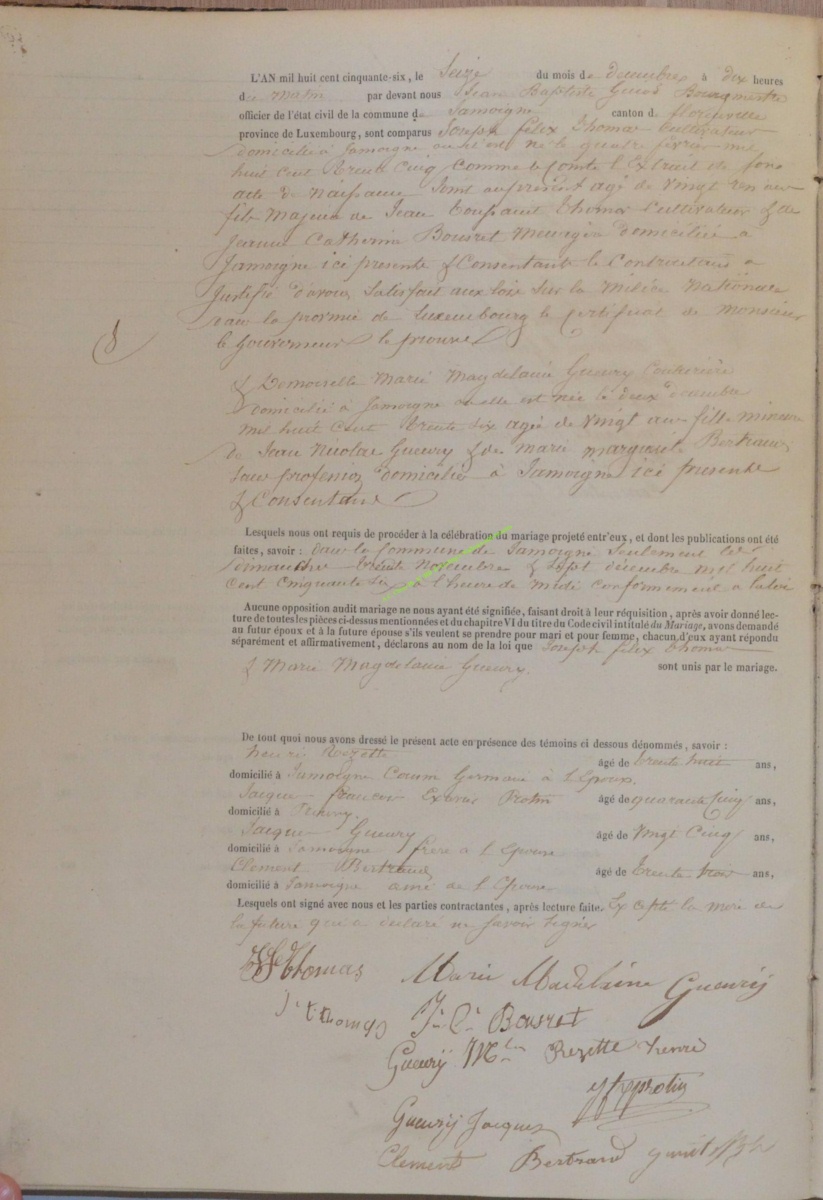 L'AN mil huit cent cinquante-six, le Seize du mois de decembre à dix heures
du matin par devant nous Jean Baptiste Bourgmestre
officier de l'état civil de la commune de Jamoigne canton de florenville
province de Luxembourg, sont comparus Joseph félix thomas cultivateur
domicilié à Jamoigne où il est né le quatre février mil
huit cent trente cinq comme le constate l'Extrait de son
acte de naissance agé de vingt un ans
fils majeur de Jean toussaint thomas Cultivateur & de
Jeanne Catherine Bousret Menagère domiciliés a
Jamoigne ici presents & Consentants le Contractant a
Justifié d'avoir Satisfait aux lois sur la Milice Nationale
dans la province de Luxembourg le certificat de Monsieur
le Gouverneur le prouve
& Demoiselle Marie Magdelaine Gueury Couturière
domicilié à Jamoigne ou elle est née le deux decembre
mil huit cent trente six agée de vingt ans fille mineure
de Jean Nicolas Gueury & de Marie Margueritte Bertrand
sans profession domiciliés à Jamoigne ici presents
& Consentans
Lesquels nous ont requis de procéder à la célébration du mariage projeté entr'eux, et dont les publications ont été
faites, savoir : dans la Commune de Jamoigne Seulement les
dimanches trente Novembre & Sept decembre mil huit
cent cinquante six à l'heure de midi conformement a la loi
Aucune opposition audit mariage ne nous ayant été signifiée, faisant droit à leur réquisition, après avoir donné lec-
ture de toutes les pièces ci-dessus mentionnées et du chapitre VI du titre du Code civil intitulé du Mariage, avons demandé
au futur époux et à la future épouse s'ils veulent se prendre pour mari et pour femme, chacun d'eux ayant répondu
séparément et affirmativement, déclarons au nom de la loi que Joseph félix thomas
& Marie Magdelaine Gueury sont unis par le mariage.
De tout quoi nous avons dressé le présent acte en présence des témoins ci dessous dénommés, savoir :
henri Rezette âgé de trente huit ans,
domicilié à Jamoigne Cousin Germain à l'Epoux.
Jacque francois Protin âgé de quarante Cinq ans,
domicilié à
Jacque Gueury âgé de Vingt Cinq ans,
domicilié à Jamoigne frère a l'Epouse
Clement Bertrand âgé de trente trois ans,
domicilié à Jamoigne ami de l'Epouse
Lesquels ont signé avec nous et les parties contractantes, après lecture faite. Excepté la mere de
la future qui a declaré ne savoir signer
Thomas Marie Madelaine Gueurÿ
J. t. thomas J.ne C.ne Bousret
Gueurÿ N.las Rezette henri
protin
Gueurÿ Jacques
Clement Bertrand